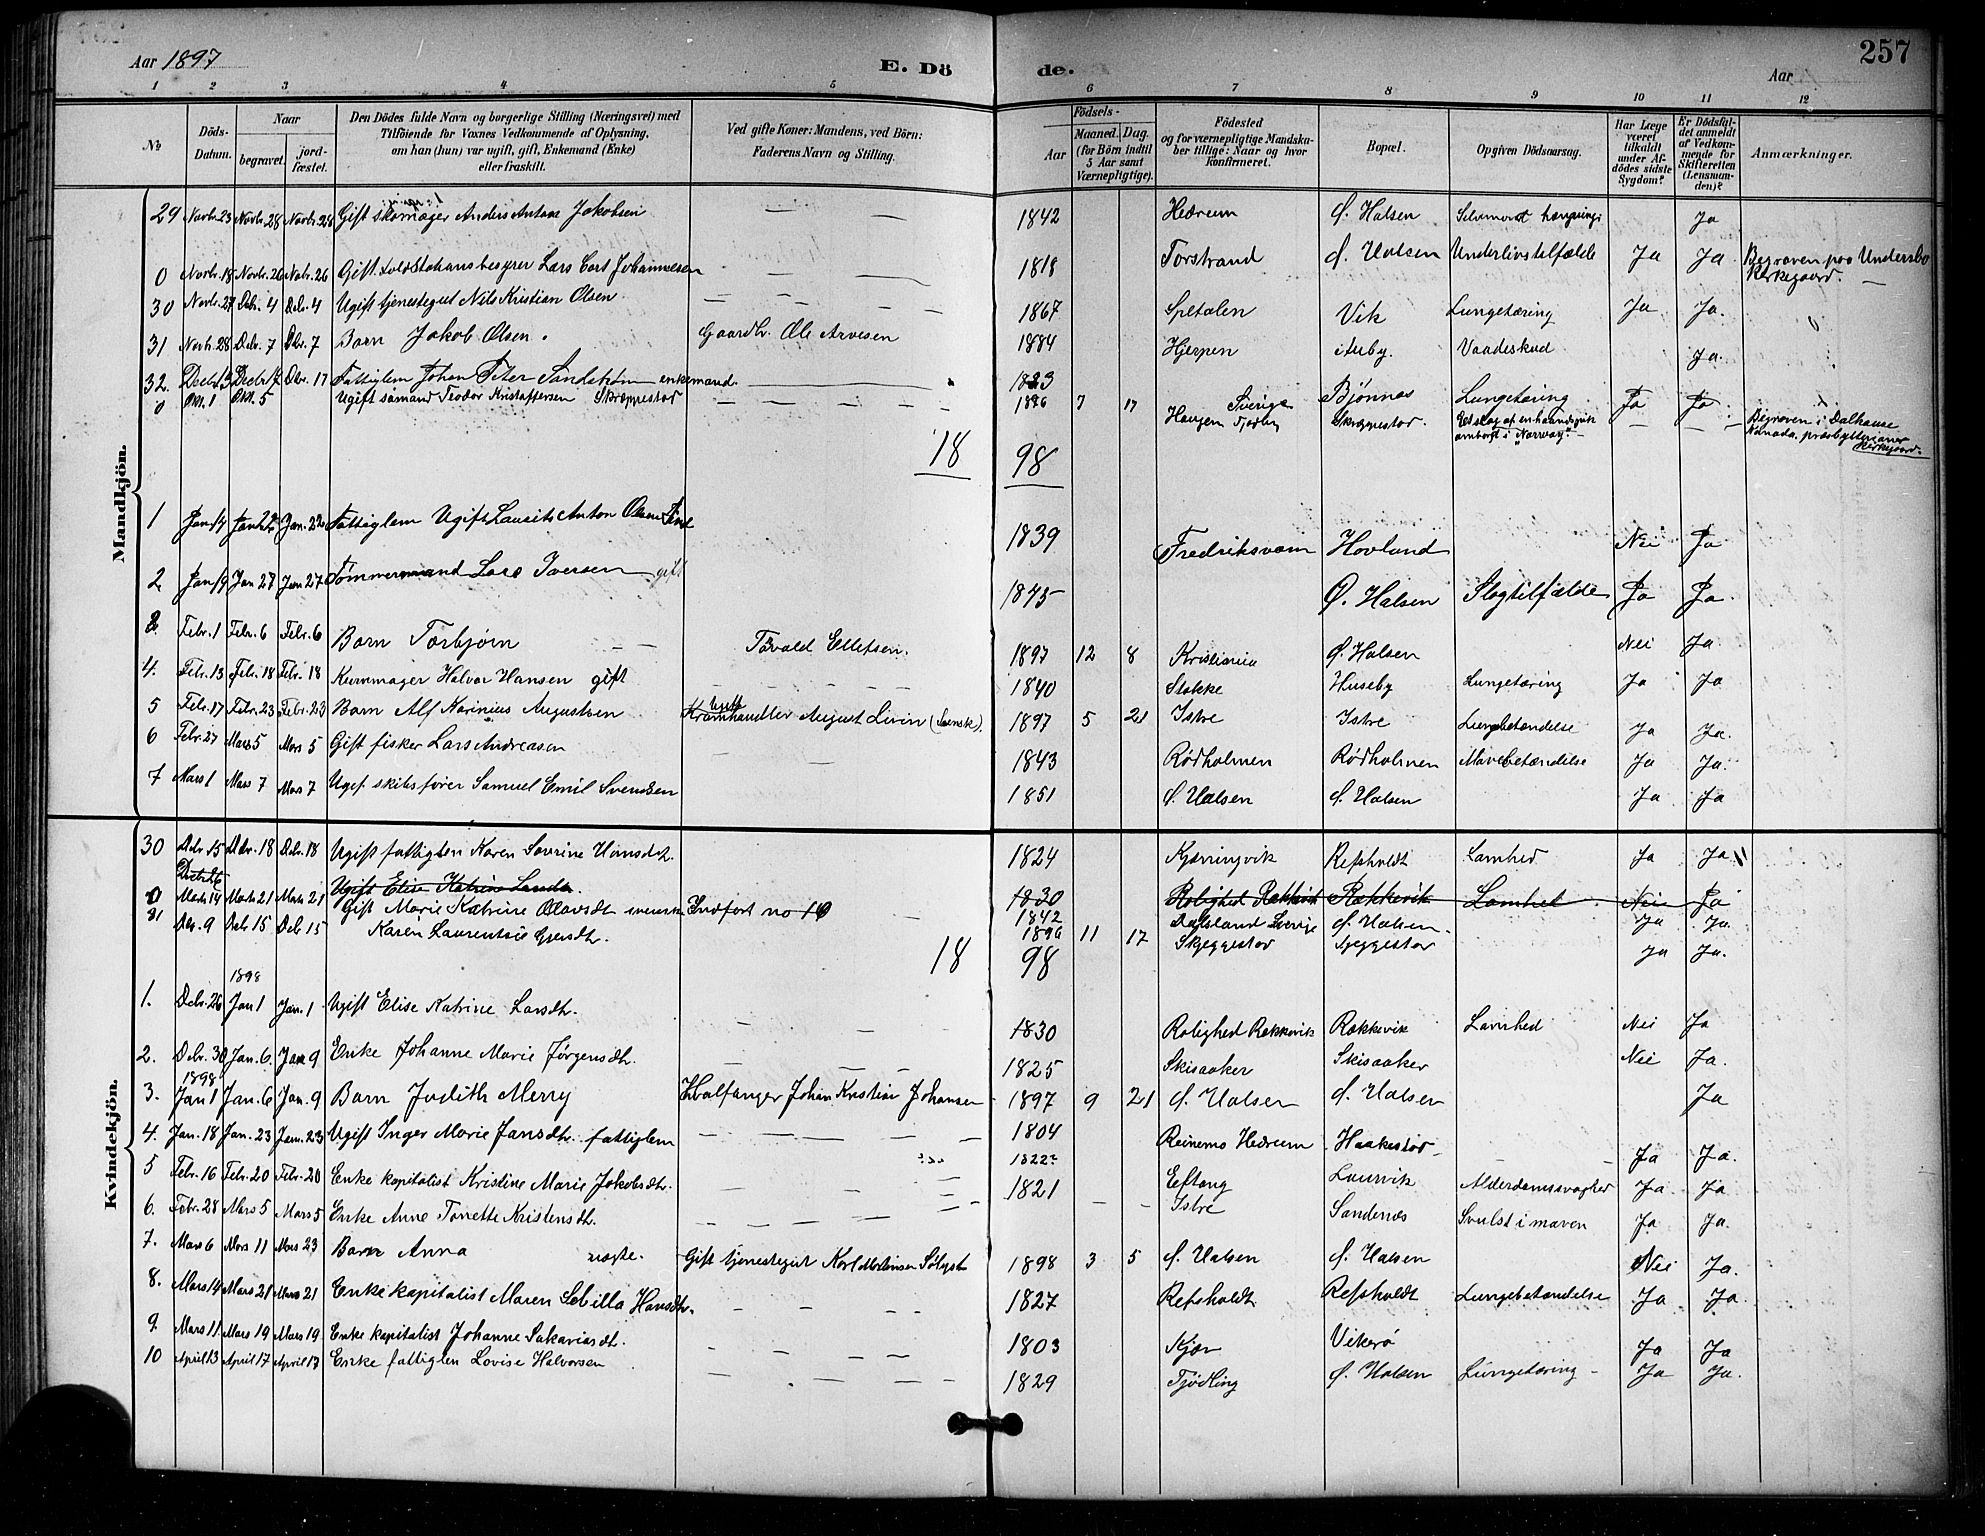 Aar 1897
E. Dö de.
Aar
257
1 2 3 4 5 6 7 8 9 10 11 12
No
Döds-Datum.
Naar
begravet.
jord-fæstet.
Den Dödes fulde Navn og borgerlige Stilling (Næringsvei) med
Tilföiende for Voxnes Vedkommende af Oplysning,
om han (hun) var ugift, gift, Enkemand (Enke)
eller fraskilt.
Ved gifte Koner: Mandens, ved Börn:
Faderens Navn og Stilling.
Födsels-
Aar
Maaned. Dag.
(for Börn indtil
5 Aar samt
Værnepligtige).
Födested
og for værnepligtige Mandska-
ber tillige: Naar og hvor
konfirmeret.
Bopæl.
Opgiven Dödsaarsag.
Har Læge
været
tilkaldt
under Af-
dödes sidste
Sygdom?
Er Dödsfal-
det anmeldt
af Vedkom-
mende for
Skifteretten
(Lensman-
den)?
Anmærkninger.
Mandkjön.
29 Novbr. 23 Novbr. 28 Novbr. 28 Gift skomager Anders Anton Jakobsen — — 1842 Hedrum Ø. Halsen Selvmord hængning Ja
0 Novbr. 18 Novbr. 26 Novbr. 26 Gift Lars Carl Johannesen — — — 1818 Torstrand Ø. Halsen Underlivstilfælde Ja Ja Begraven paa Undersbo
Kirkegaard. —
30 Novbr. 27 Debr. 4 Debr. 4 Ugift tjenestegut Nils Kristian Olsen — — — — 1867 Spetalen Vik Lungetæring Ja Ja.
31 Novbr. 28 Debr. 7 Dbr. 7 Barn Jakob Olsen. Gaardbr. Ole Arvesen 1884 Hjerpen Auby. Vaadeskud Ja.
32. Decbr. 13 Decbr. 17 Dbr. 17 Fattiglem Johan Peter Sandstrøm enkemand. 1823 Sverige Bjønnes Lungetæring Ja Ja
0 Okt. 1 Okt. 5 Ugift sömand Teodor Kristoffersen Skræppestad — — — — 1876 7 17 Haugen Tjødling Skræppestad. Et slag af en haandspik
ombord i "Norway". — — — Begraven i Dalhouse
Kanada, presbyterianer
Kirkegaard.
18 98
1 Jan. 14 Jan. 22 Jan. 22 Fattiglem Ugift Laurits Anton Olsen 1839 Fredriksværn Hovland Nei Ja
2 Jan. 19 Jan 27 Jan. 27 Tömmermand Lars Iversen gift 1845 Ø. Halsen Slagtilfælde Ja Ja.
3. Febr. 1 Febr. 6 Febr. 6 Barn Torbjørn — — Torvald Ellefsen. 1897 12 8 Kristiania Ø. Halsen Nei Ja.
4. Febr. 13 Febr. 18 Febr. 18 Kurvmager Halvor Hansen gift — — — — 1840 Stokke Huseby Lungetæring Ja Ja
5 Febr. 17 Febr. 23 Febr. 23 Barn Alf Karinius Augustsen Kramhandler August Livin (Svensk). 1897 5 21 Istre Istre Lungebetændelse Ja Ja.
6 Febr. 27 Mars 5 Mars 5 Gift fisker Lars Andreasen — — 1843 Rødholmen Rødholmen Mavebetændelse Ja Ja.
7 Mars 1 Mars 7 Mars 7 Ugift skibsfører Samuel Emil Svendsen 1851 Ø. Halsen Ø. Halsen Ja Ja
Kvindekjön.
30 Debr. 15 Debr. 18 Debr. 18 Ugift fattiglem Karen Severine Hansdt. 1824 Kjærringvik Refsholdt Lamhed Ja Ja
Decbr. 26 Ugift Elise Katrine Larsdt. 1830 Rolighed Rækkevik Rækkevik Lamhed Nei Ja
0 Marts 14 Marts 21 Marts 21 Gift Marie Katrine Olavsdt svensk Indført no 10 1842 Dalsland Sverige Ø. Halsen. Ja Ja.
31 Der. 9 Debr 15 Debr 15 Karen Laurentse 1896 11 17 Skjeggestad Sjeggestad Ja Ja.
18 98
1898
1. Debr. 26 Jan 1 Jan. 1 Ugift Elise Katrine Larsdtr. — — — 1830 Rolighed Rækkevik Rækkevik Lamhed Nei Ja
2. Debr. 30 Jan. 6. Jan 9 Enke Johanne Marie Jørgensdtr. — — — 1825 Skisaaker Skisaaker Nei Ja.
1898
3. Jan 1 Jan. 6 Jan. 9 Barn Judith Merry Hvalfanger Johan Kristian Johansen 1897 9 21 Ø. Halsen Ø. Halsen Ja
4. Jan. 18 Jan. 23 Jan. 23 Ugift Inger Marie Jansdtr. fattiglem — — — — — 1804 Reinemo Hedrum Haakestad — — Ja Ja.
1822?
5 Febr. 16 Febr. 20 Febr. 20 Enke kapitalist Kristine Marie Jakobsdtr. — — — 1821 Eftang Laurvik Alderdomssvaghed Ja Ja
6. Febr. 28 Mars 5 Mars 5 Enke Anne Tonette Kristensdtr. — — — — — — — Istre Sandenæs Svulst i maven Ja Ja.
7. Mars 6 Mars 11 Mars 23 Barn Anna uægte. Gift tjenestegut Karl Mortensen 1898 3 5 Ø. Halsen Ø. Halsen Nei Ja.
8. Mars 14 Mars 21 Mars 21 Enke kapitalist Maren Sebilla Hansdtr. — — — — 1827 Refsholdt Refsholdt Lungebetændelse Ja Ja.
9. Mars 11 Mars 19 Mars 19. Enke kapitalist Johanne Sakariasdtr. — — — — 1803 Kjær Vikerø Ja Ja
10 April 13 April 17 April 17 Enke fattiglem Lovise Halvorsen — — — — — 1829 Tjødling Ø. Halsen Lungetæring — Ja Ja.